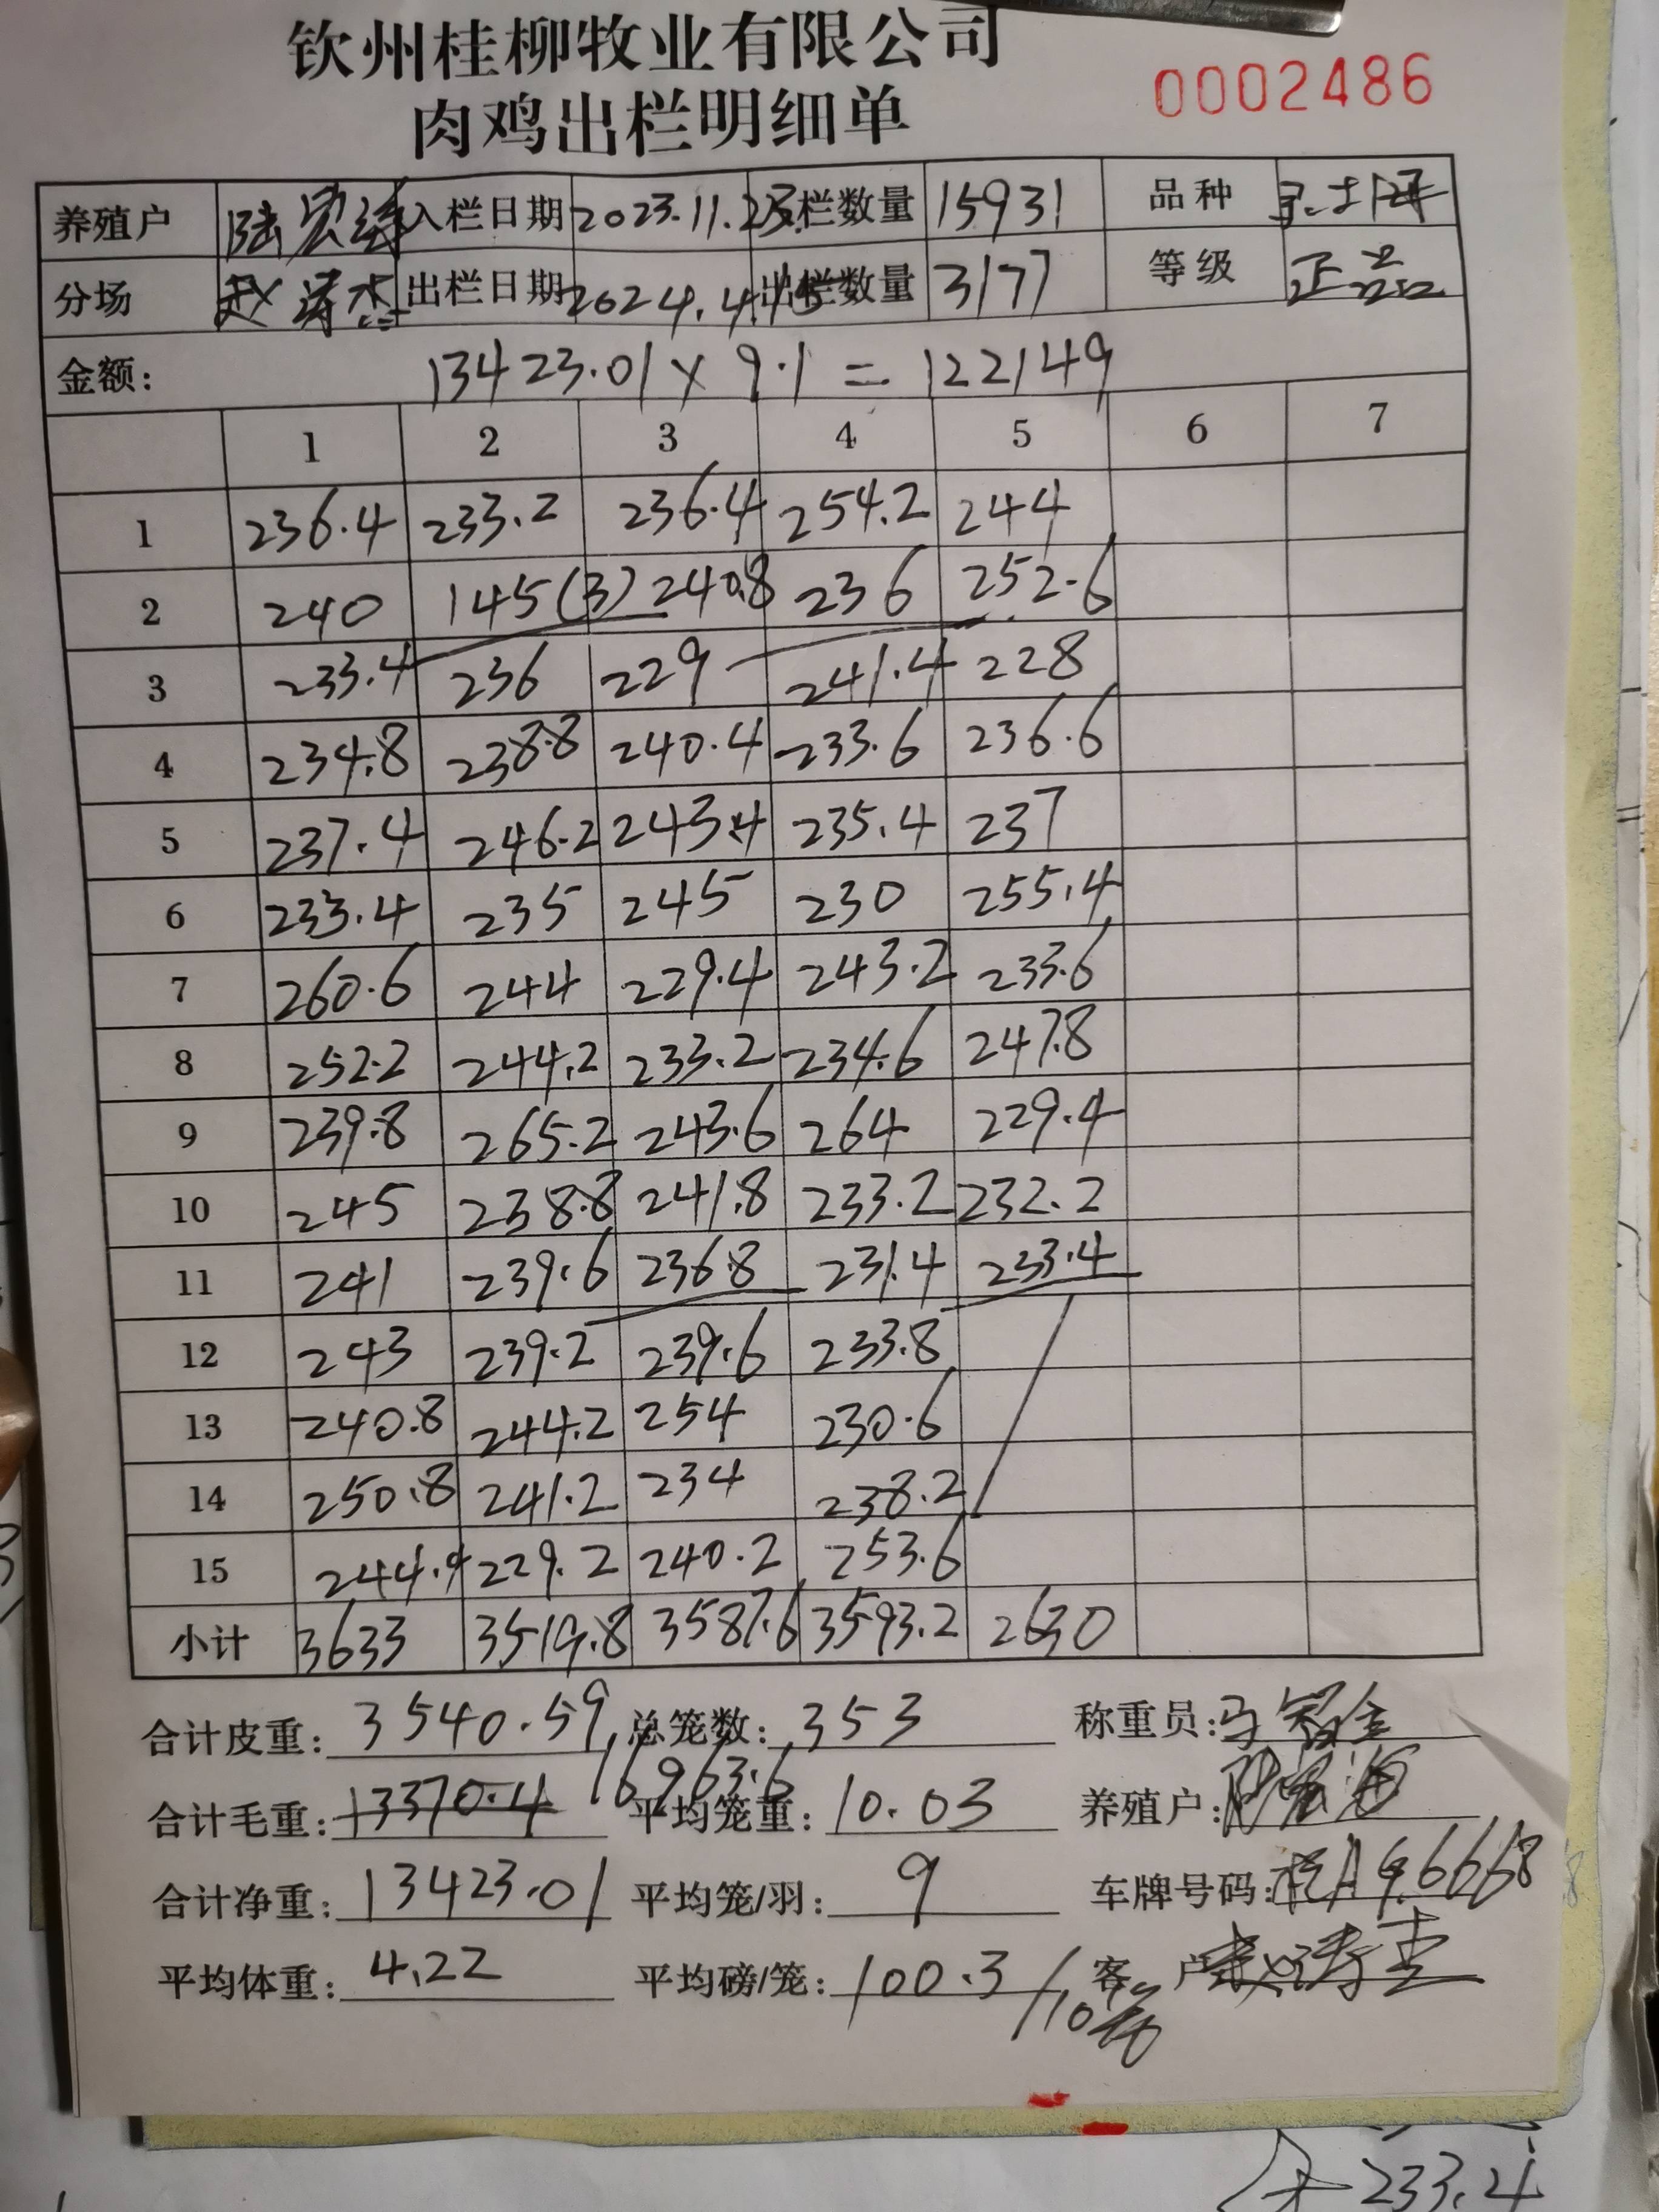 钦州桂柳牧业有限公司
肉鸡出栏明细单
0002486
养殖户 陆宏 入栏日期 2023.11.23 入栏数量 15931 品种
分场 赵涛杰 出栏日期 2024.4.15 出栏数量 3177 等级 正品
金额: 13423.01 x 9.1 = 122149
1 2 3 4 5 6 7
1 236.4 233.2 236.4 254.2 244
2 240 145(3) 240.8 236 252.6
3 233.4 236 229 241.4 228
4 234.8 238.8 240.4 233.6 236.6
5 237.4 246.2 243.4 235.4 237
6 233.4 235 245 230 255.4
7 260.6 244 229.4 243.2 233.6
8 252.2 244.2 233.2 234.6 247.8
9 239.8 265.2 243.6 264 229.4
10 245 238.8 241.8 233.2 232.2
11 241 239.6 236.8 231.4 233.4
12 243 239.2 239.6 233.8
13 240.8 244.2 254 230.6
14 250.8 241.2 234 238.2
15 244.4 229.2 240.2 253.6
小计 3633 3519.8 3587.6 3593.2 2630
合计皮重: 3540.59 总笼数: 353 称重员:
合计毛重: 13370.4 16963.6 平均笼重: 10.03 养殖户:
合计净重: 13423.01 平均笼/羽: 9 车牌号码:
平均体重: 4.22 平均磅/笼: 100.3/10 客户
233.4